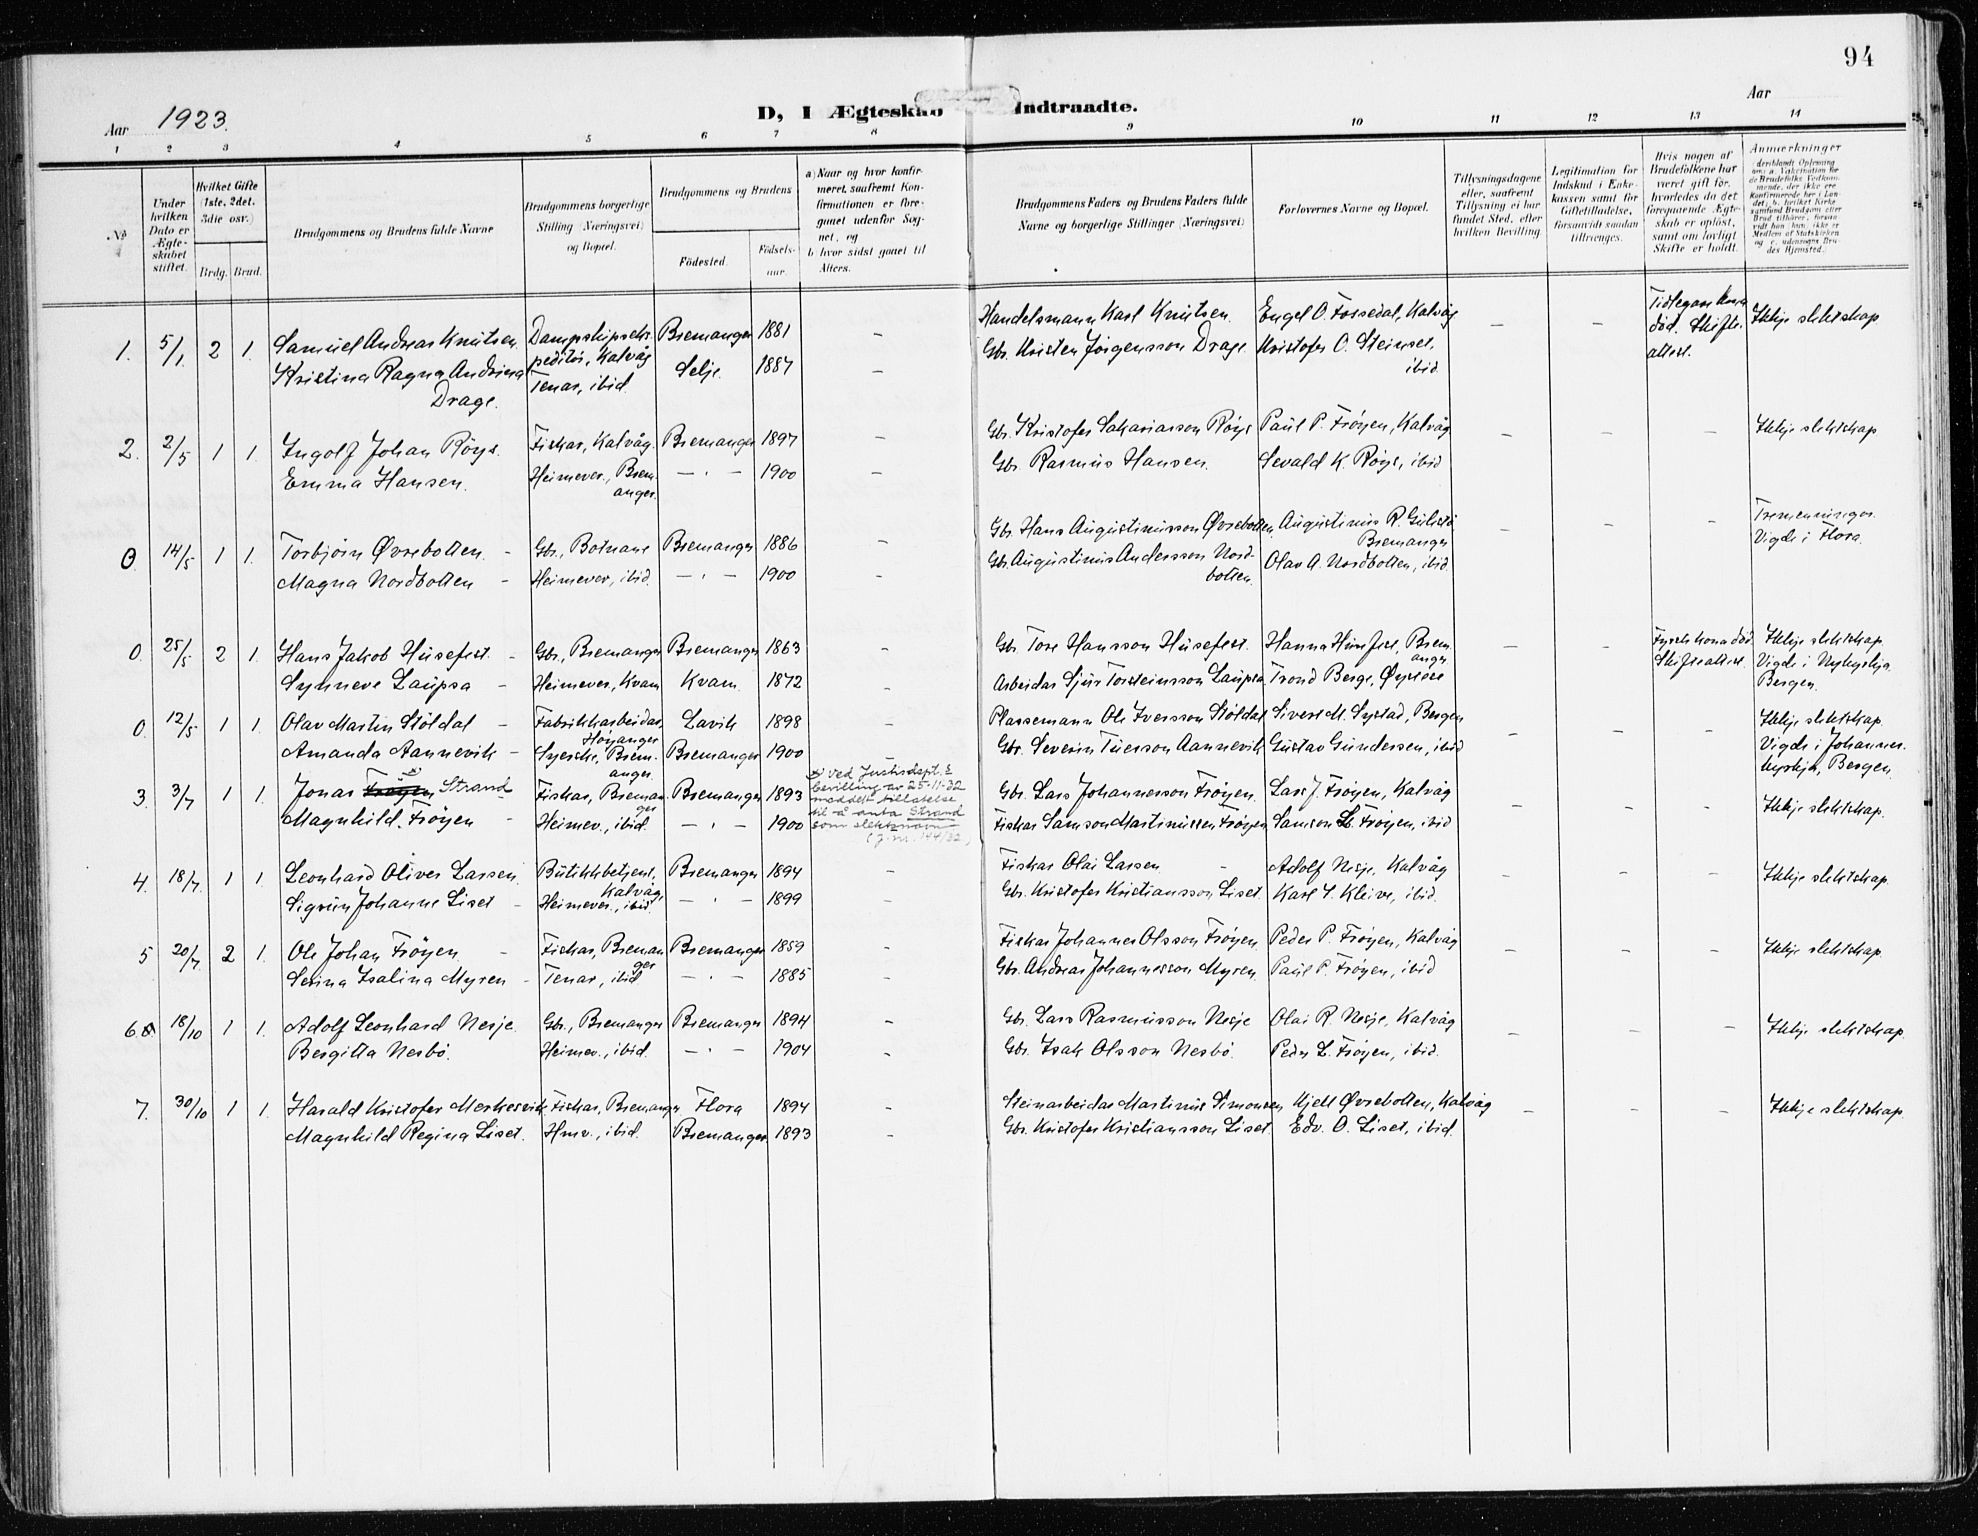 94
Aar 1923.
D, I Ægteskab Indtraadte.
Aar
1 2 3 4 5 6 7 8 9 10 11 12 13 14
No
Under hvilken Dato er Ægteskabet stiftet.
Hvilket Gifte (1ste, 2det, 3die osv.)
Brdg. Brud.
Brudgommens og Brudens fulde Navne
Brudgommens borgerlige Stilling (Næringsvei) og Bopæl.
Brudgommens og Brudens
Fødested. Fødselsaar.
a) Naar og hvor konfirmeret, saafremt Konfirmationen er foregaaet udenfor Sognet, og
b hvor sidst gaaet til Alters.
Brudgommens Faders og Brudens Faders fulde Navne og borgerlige Stillinger (Næringsvei)
Forlovernes Navne og Bopæl.
Tillysningsdagene eller, saafremt Tillysning ei har fundet Sted, efter hvilken Bevilling.
Legitimation for Indskud i Enkekassen samt for Giftetilladelse, forsaavidt saadan tiltrænges.
Hvis nogen af Brudefolkene har været gift før, hvorledes da det foregaaende Ægteskab er opløst, samt om lovligt Skifte er holdt.
Anmærkninger
1. 5/1. 2 1. Samuel Andreas Knutsen. Dampskipseks- Bremanger 1881 – Handelsmann Karl Knutsen. Engel O. Fossedal, Kalvåg – – Ikkje slektskap.
peditør, Kalvåg
død. Skifte-
Kristina Ragna Andrina Tenar, ibid. Selje. 1887 – Gbr. Kristen Jørgensson Drage Kristofer O. Steinset, attest.
Drage. ibid.
2. 2/5 1 1. Ingolf Johan Røys. Fiskar, Kalvåg. Bremanger 1897 – Gbr. Kristofer Sakariasson Røys Paul P. Frøyen, Kalvåg – – – Ikkje slektskap
Emma Hansen. Heimever., Brem- – " – 1900 – Gbr. Rasmus Hansen. Sevald K. Røys, ibid
anger.
0. 14/5 1 1. Torbjørn Øvrebotten. – Gbr., Botnane Bremanger 1886 – Gbr. Hans Augustinusson Øvrebotten Augustinus R. – – – Tremenningar.
Bremanger Vigde i Flora.
Magna Nordbotten – Heimever, ibid. – " – 1900 – Gbr. Augustinus Andersson Nord- Olav A. Nordbotten, ibid.
botten.
0. 25/5 2 1. Hans Jakob Husefest. – Gbr., Bremanger Bremanger 1863 Gbr. Tore Hansson Husefest. Hanna Husefest, Brem- – – Fyrste kona død. Ikkje slektskap.
anger Skifteattest. Vigde i Nykyrkja
Synneve Laupsa – Heimever, Kvam Kvam. 1872 – Arbeidar Sjur Torsteinsson Laupsa Trond Berge, Bergen.
0. 12/5 1 1. Olav Martin Støldal – Fabrikkarbeidar, Lavik 1898 – Plassemann Ole Iversson Støldal Sivert M. Systad, Bergen – – – Ikkje slektskap.
Høyanger Vigde i Johannes-
Amanda Aannevik – Syerske, Brem- Bremanger 1900 Gbr. Severin Aannevik Gustav Gundersen, ibid kyrkja, Bergen.
anger.
3. 3/7 1 1. Jonas Frøyen Strand Fiskar, Breman- Bremanger 1893 Gbr. Lars Johannesson Frøyen. Lars J. Frøyen, Kalvåg – – – Ikkje slektskap.
ger
Magnhild Frøyen – Heimev., ibid. – " – 1900 Fiskar Samson Martinussen Frøyen Samson L. Frøyen, ibid
ved Justisdept.s
bevilling av 25-11-32
meddelt tillatelse
til å anta Strand
som slektsnavn
(j. nr. 144/32)
4. 18/7 1 1. Leonhard Oliver Larsen. Butikkbetjent, Bremanger 1894 – Fiskar Olai Larsen – Adolf Nesje, Kalvåg – – – Ikkje slektskap.
Kalvåg.
Sigrun Johanne Liset – Heimever., ibid. – " – 1899 – Gbr. Kristofer Kristiansson Liset. Karl S. Kleive, ibid.
5 20/7 2 1. Ole Johan Frøyen – Fiskar, Breman- Bremanger 1859 – Fiskar Johannes Olsson Frøyen. Peder P. Frøyen, Kalvåg – – – Ikkje slektskap.
ger
Serina Isalina Myren – Tenar, ibid – " – 1885 – Gbr. Andreas Johannesson Myren. Paul P. Frøyen, ibid
6 18/10 1 1. Adolf Leonhard Nesje. Gbr., Bremanger Bremanger 1894 – Gbr. Lars Rasmusson Nesje Olai R. Nesje, Kalvåg – – – Ikkje slektskap.
Bergitta Nesbø. Heimev., ibid. – " – 1904 – Gbr. Isak Olsson Nesbø. Peder L. Frøyen, ibid.
7. 30/10 1 1. Harald Kristofer Merkesvik Fiskar, Bremanger Flora 1894 Steinarbeidar Martinus Simonsen Kjell Øvrebotten, Kalvåg – – – Ikkje slektskap.
Magnhild Regina Liset. Hmv., ibid. Bremanger 1893 – Gbr. Kristofer Kristiansson Liset Edv. O. Liset, ibid.